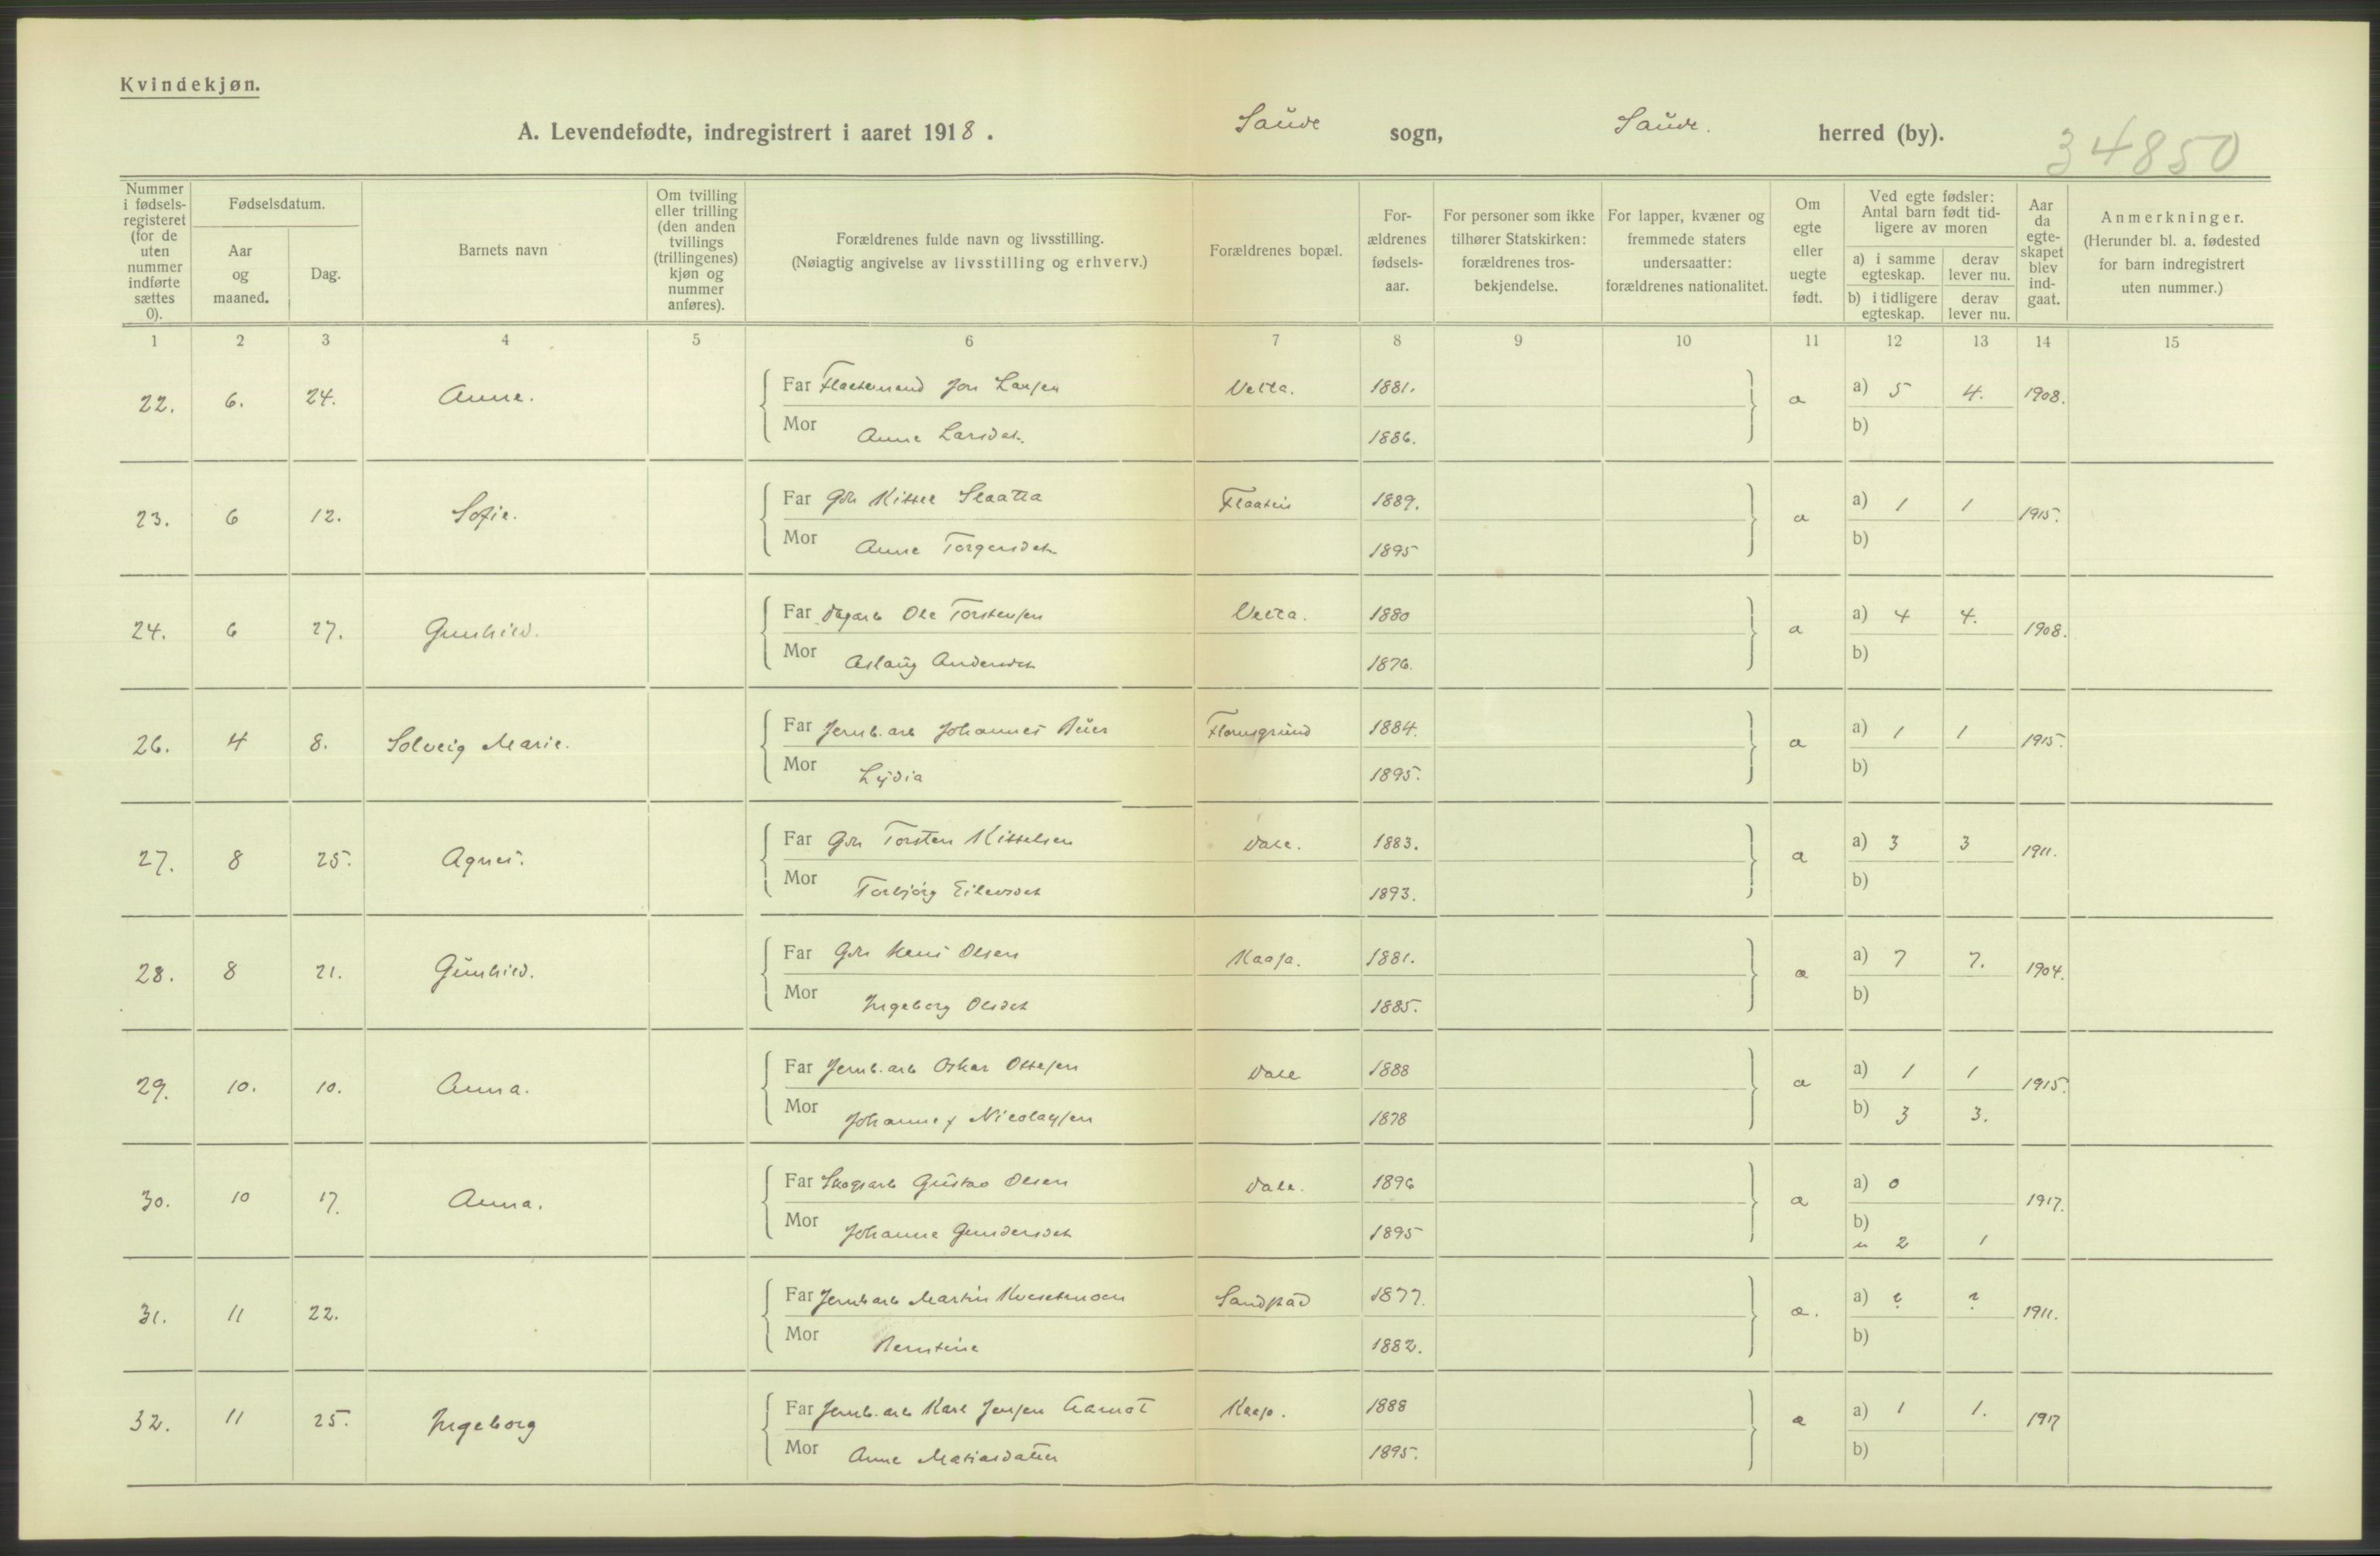 Kvindekjøn.
A. Levendefødte, indregistrert i aaret 1918. Saude sogn, Saude. herred (by).
34850
Nummer i fødsels-registeret (for de uten nummer indførte sættes 0).
Fødselsdatum.
Aar og maaned.
Dag.
Barnets navn
Om tvilling eller trilling (den anden tvillings (trillingenes) kjøn og nummer anføres).
Forældrenes fulde navn og livsstilling.
(Nøiagtig angivelse av livsstilling og erhverv.)
Forældrenes bopæl.
For-ældrenes fødsels-aar.
For personer som ikke tilhører Statskirken: forældrenes tros-bekjendelse.
For lapper, kvæner og fremmede staters undersaatter: forældrenes nationalitet.
Om egte eller uegte født.
Ved egte fødsler: Antal barn født tid-ligere av moren
a) i samme egteskap.
derav lever nu.
b) i tidligere egteskap.
derav lever nu.
Aar da egte-skapet blev ind-gaat.
Anmerkninger.
(Herunder bl. a. fødested for barn indregistrert uten nummer.)
1 2 3 4 5 6 7 8 9 10 11 12 13 14 15
22. 6. 24. Anne. Far Jon Larsen 1881. a) 5 4. 1908.
Mor Anne Larsdat. 1886. b)
23. 6 12. Sofie. Far Gbr Kittel Slaatta Flaatin 1889. a) 1 1 1915.
Mor Anne Torgersdat. 1895 b)
24. 6 27. Gunhild. Far Dagarb Ole Torstensen 1880 a) 4 4. 1908.
Mor Aslaug Andersdat 1876. b)
26. 4 8. Solveig Marie. Far Jernb. arb Johannes 1884. a) 1 1 1915.
Mor Lydia 1895. b)
27. 8 25. Agnes. Far Gbr Torsten Kittelsen Dale. 1883. a) 3 3 1911.
Mor Torbjörg Eilevsdat 1893. b)
28. 8 21. Gunhild. Far Gbr Olsen Kaasa. 1881. a) 7 7. 1904.
Mor Ingeborg Olsdat 1885. b)
29. 10. 10. Anna. Far Jernb. arb Oskar Ottesen Dale 1888 a) 1 1 1915.
Mor Johanne f Nicolaysen 1878 b) 3 3.
30. 10 17. Anna. Far Skogsarb Gustav Olsen Dale. 1896 a) 0 1917.
Mor Johanne Gundersdat 1895 b)
u 2 1
31. 11 22. Far Jernb arb Martin 1877. a) ? ? 1911.
Mor Berntine 1882. b)
32. 11 25. Ingeborg Far Jernb. arb Karl Jensen Aamot Kaasa. 1888 a) 1 1. 1917
Mor Anne Matiasdatter 1895. b)